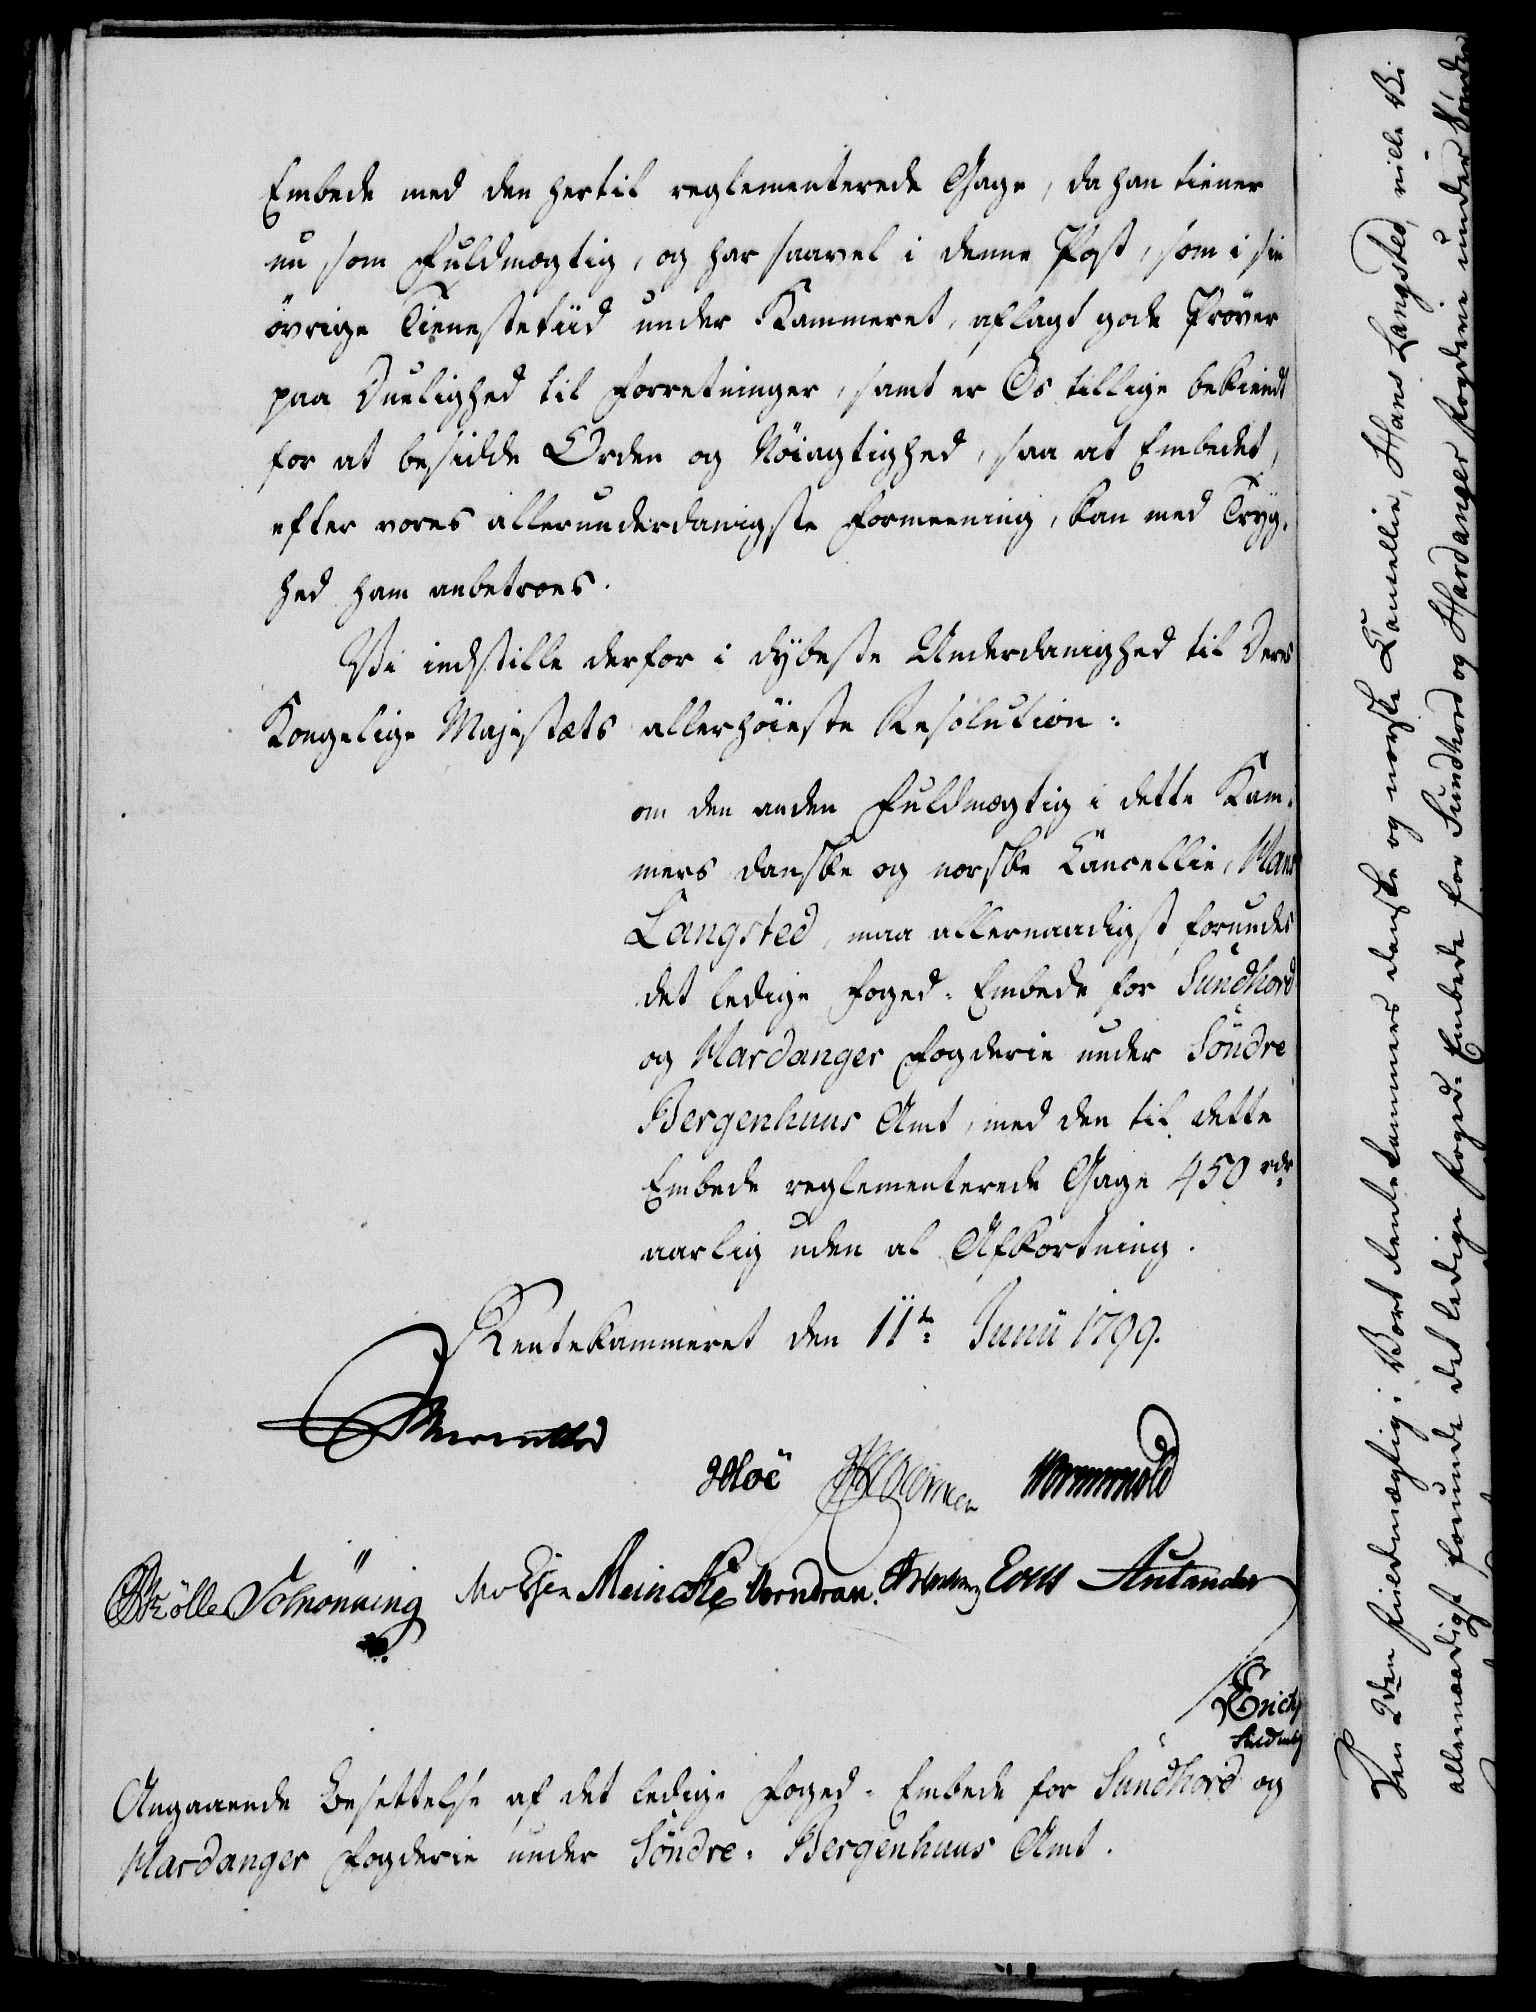 Embede med den hertil reglementerede Gage, da han tiener
nu som Fuldmægtig, og har saavel i denne Post, som i sin
övrige Tienestetiid under Kammeret, aflagt gode Pröver
paa Duelighed til Forretninger, samt er Os tillige bekiendt
for at besidde Orden og Nöiagtighed, saa at Embedet,
efter vores allerunderdanigste Formeening, kan med Tryg-
hed ham anbetroes.
Vi indstille derfor i dÿbeste Underdanighed til Deres
Kongelige Majestæts allerhöieste Resolution:
om den anden Fuldmægtig i dette Kam-
mers danske og norske Cancellie, Hans
Langsted, maa allernaadigst forundes
det ledige Foged-Embede for Sundhord
og Hardanger Fogderie under Söndre
Bergenhuus Amt, med den til dette
Embede reglementerede Gage 450 rdr
aarlig uden al Afkortning.
Rentekammeret den 11te Junii 1799.
Hoë Wormskiold
Schrönning Meincke Vorndran
Angaaende Besettelse af det ledige Foged-Embede for Sundhord og
Hardanger Fogderie under Söndre-Bergenhuus Amt.
Den 2den Fuldmægtig i Vort Rentekammers danske og norske Cancellie, Hans Langsted, ville Vi
allernaadigst forunde det ledige Foged-Embede for Sundhord og Hardanger Fogderie under Söndre